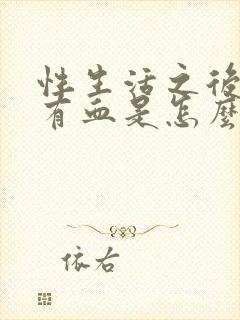 性生活之後
有血是怎麼
依右